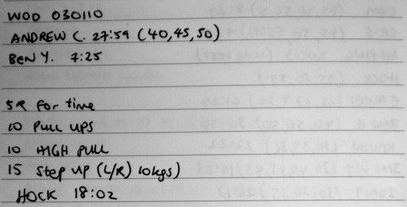 WOD 030110
ANDREW C. 27:59 (40,45,50)
BEN Y. 7:25
5R for time
10 PULL UPS
10 HIGH PULL
15 Step up (L/R) 10kgs)
HOCK 18:02